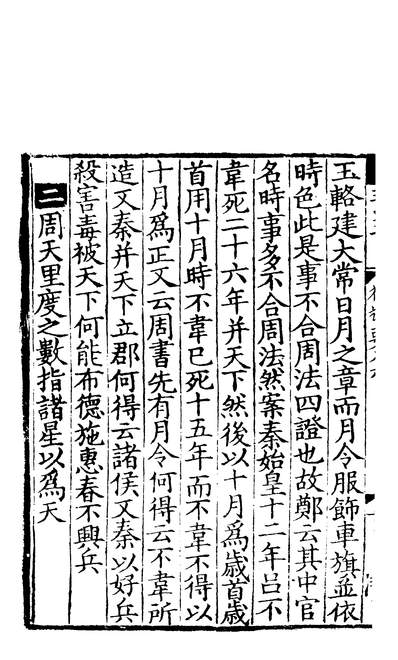 玉輅建大常日月之章而月令服飾車旗並依
時色此是事不合周法四證也故鄭云其中官
名時事多不合周法然案秦始皇十二年吕不
韋死二十六年并天下然後以十月爲歲首歲
首用十月時不韋已死十五年而不韋不得以
十月爲正又云周書先有月令何得云不韋所
造又秦并天下立郡何得云諸侯又秦以好兵
殺害毒被天下何能布德施惠春不興兵
二周天里度之數指諸星以爲天